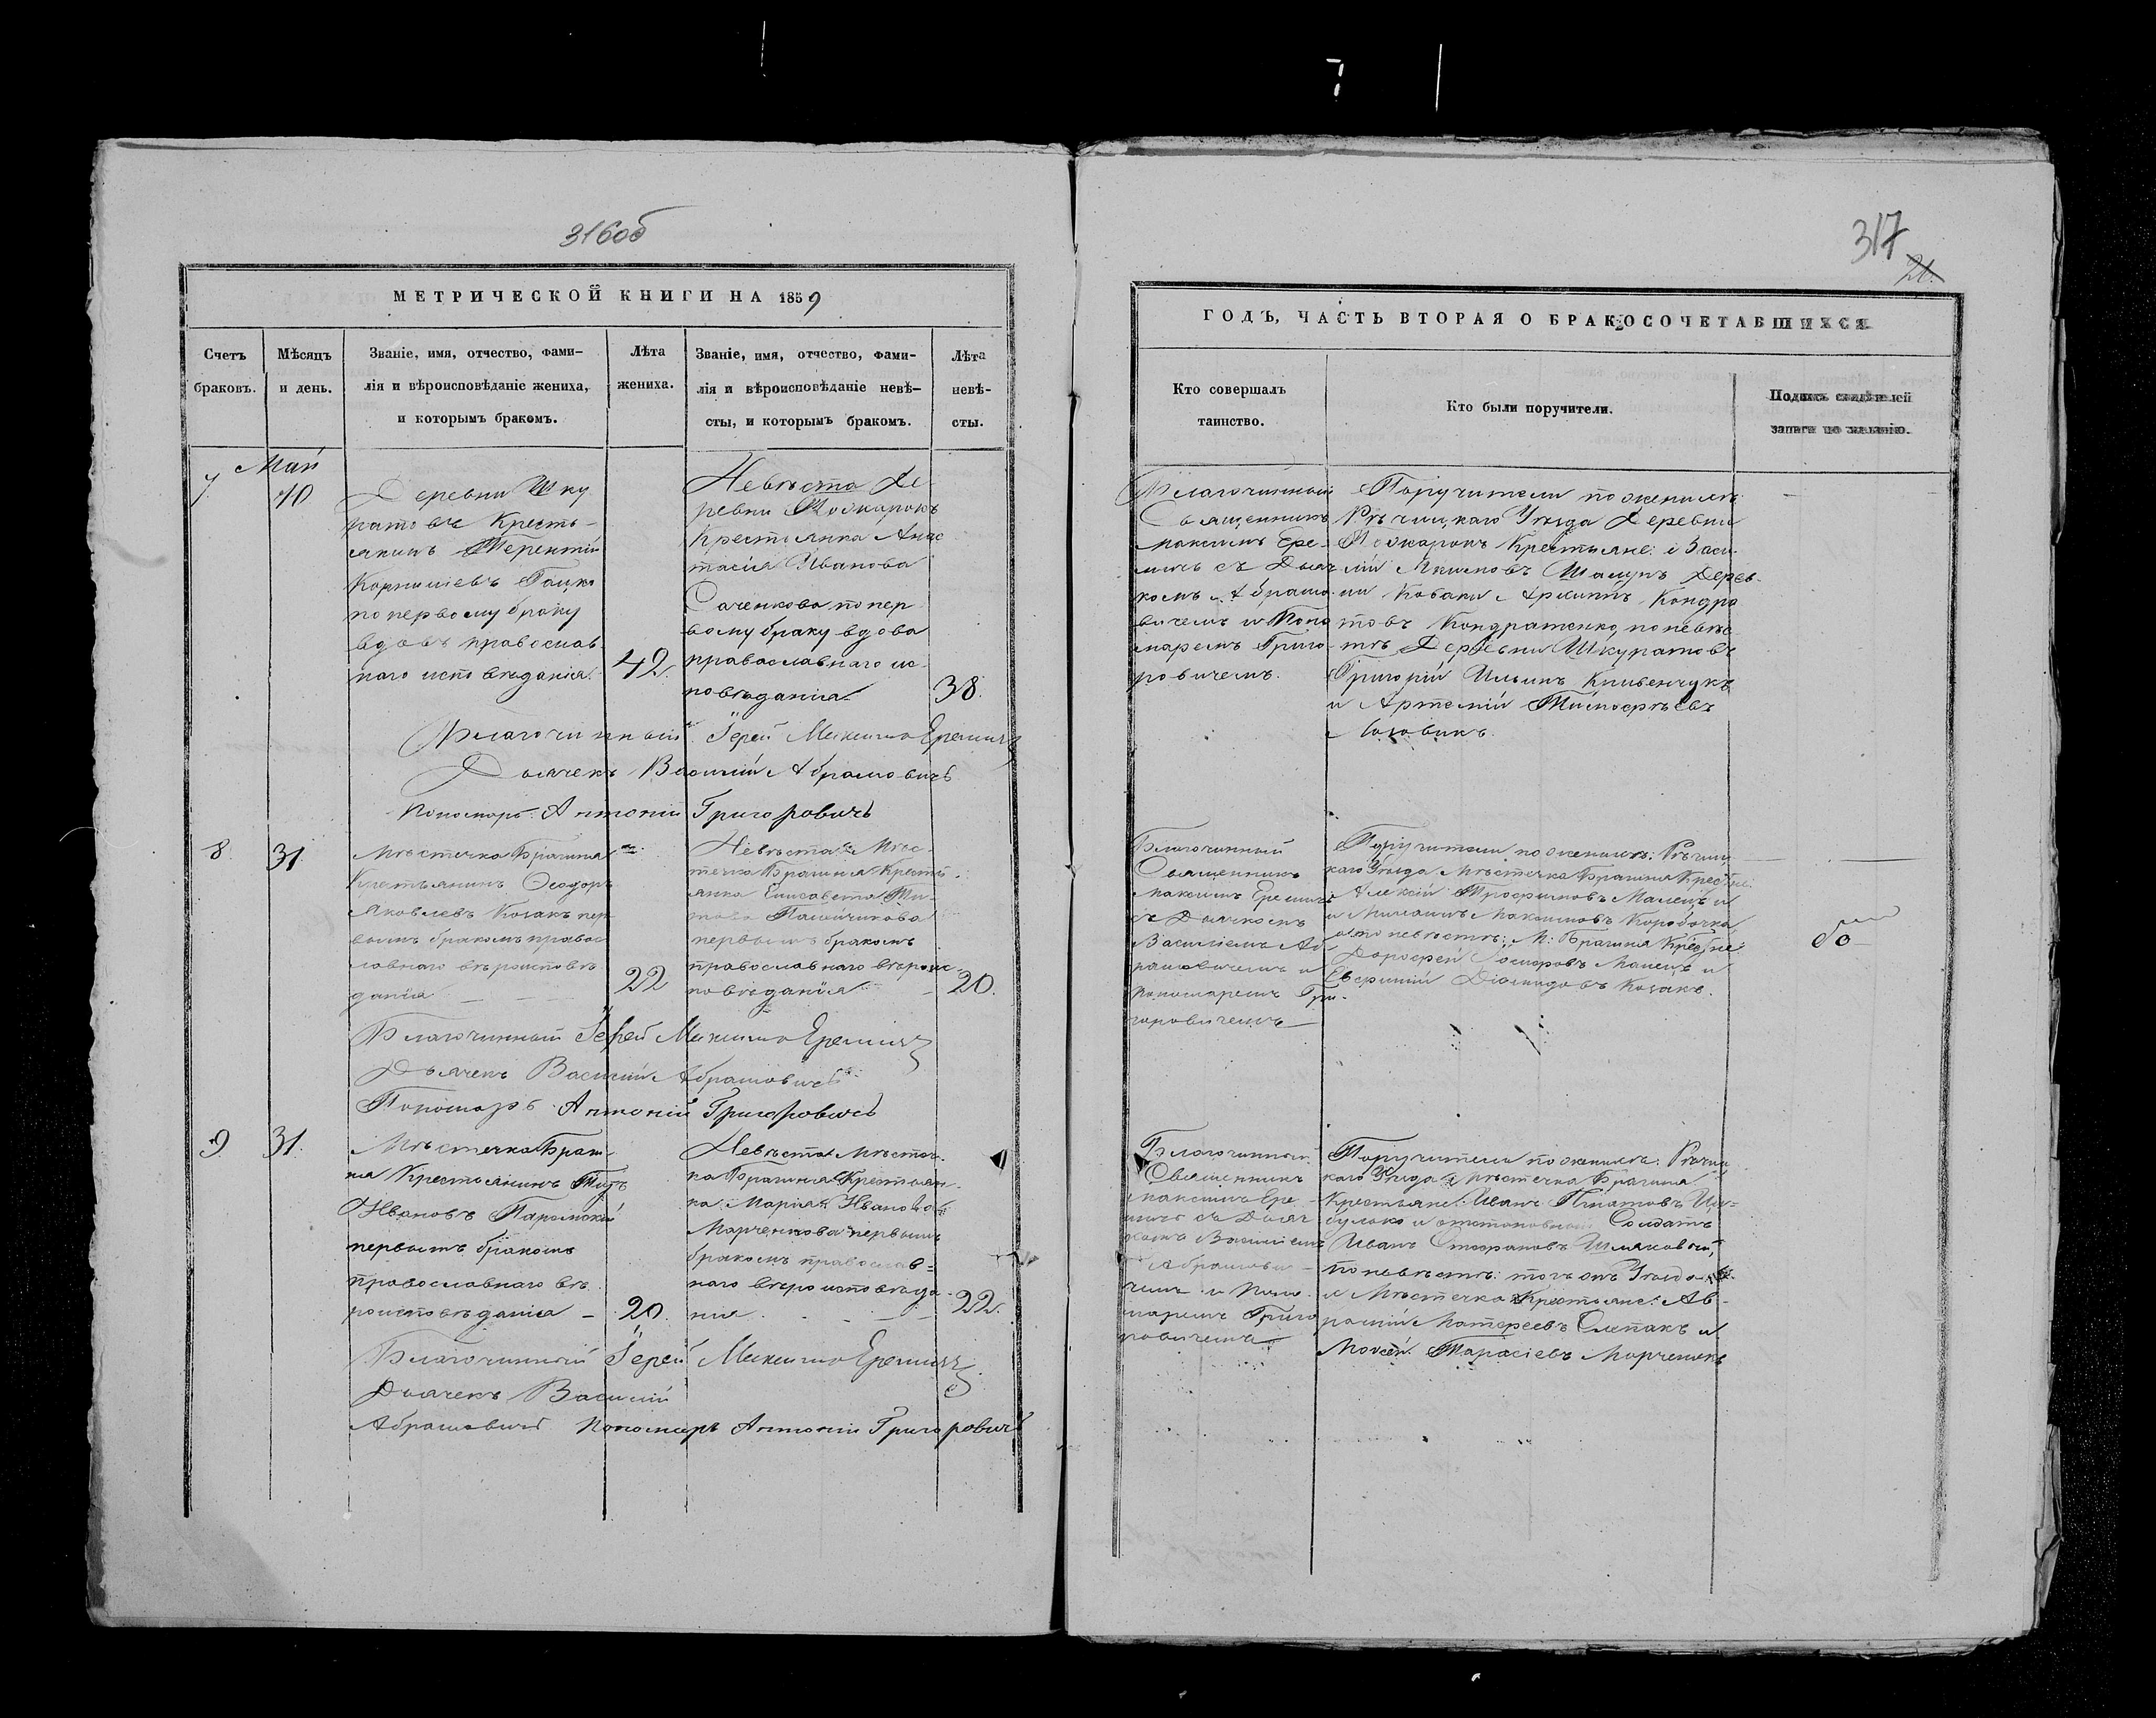 316об
МЕТРИЧЕСКОЙ КНИГИ НА 1859
Счетъ браковъ.
Мѣсяцъ и день.
Званіе, имя, отчество, фами-
лія и вѣроисповѣданіе жениха,
и которымъ бракомъ.
Лѣта жениха.
Званіе, имя, отчество, фами-
лія и вѣроисповѣданіе невѣ-
сты, и которымъ бракомъ.
Лѣта невѣ-
сты.
Май
7
10
Деревни Шку
ратовъ Кресть-
янинъ Терентій
Корниліевъ Гацко
по первому браку
вдовъ православ
наго исповѣданія.
42.
Невѣста Де
ревни
Крестьянка Анас
тасія Иванова
Саченкова по пер
вому браку вдова
православнаго ис-
повѣданія
38.
Благочинный Іерей Максимъ Еремичъ
Дьячекъ Василій Абрамовичъ
Пономарь Антоній Григоровичъ
8.
31
Мѣстечка Брагина
Крестьянинъ Ѳеодоръ
Яковлевъ Козакъ пер
вымъ бракомъ правос
лавнаго вѣроисповѣ
данія
22
Невѣста Мѣс-
течка Брагина Кресть-
янка Елисавета Ти-
това
первымъ бракомъ
православнаго вѣроис-
повѣданія
20.
Благочинный Іерей Максимъ Еремичъ
Дьячекъ Василій Абрамовичъ
Пономарь Антоній Григоровичъ
9
31.
Мѣстечка Браги-
на Крестьянинъ Титъ
Ивановъ
первымъ бракомъ
православнаго вѣ
роисповѣданія
20.
Невѣста Мѣстеч-
ка Брагина Крестьян-
ка Марія Иванова
Марченкова первымъ
бракомъ православ=
наго вѣроисповѣда
нія
22.
Благочинный Іерей Максимъ Еремичъ
Дьячекъ Василій
Абрамовичъ Пономарь Антоній Григоровичъ
317
21.
ГОДЪ, ЧАСТЬ ВТОРАЯ О БРАКОСОЧЕТАВШИХСЯ
Кто совершалъ
таинство.
Кто были поручители.
Подпись свидѣтелей
записи по желанію.
Благочинный
Священникъ
Максимъ Ере-
мичъ съ Дьяч
комъ Абрамо
вичемъ и Поно
маремъ Григо
ровичемъ.
Поручители по женихѣ
Рѣчицкаго Уѣзда Деревни
Крестьяне: Васи-
лій Акимовъ Шамунъ Дерев-
ни Кабаки Кондра
товъ Кондратенко, по невѣс
тѣ Деревни Шкуратовъ
Григорій Ильинъ
и Артемій Тимоѳѣевъ
Благочинный
Священникъ
Максимъ Еремичъ
съ Дьячкомъ
Василіемъ Аб
рамовичемъ и
Пономаремъ Гри-
горовичемъ
Поручители по женихѣ: Рѣчиц
каго Уѣзда Мѣстечка Брагина
Алексій Трофимовъ Малецъ и
Максимовъ Коробочка
а по невѣстѣ: М: Брагина
Дороѳей Малецъ и
Евфимій Діомидовъ Козакъ.
Благочинный
Священникъ
Максимъ Ере-
мичъ съ Дьяч
комъ Василіемъ
Абрамови-
чемъ и Поно
маремъ Григо
ровичемъ
Поручители по женихѣ: Рѣчиц
каго Уѣзда Мѣстечка Брагина
Крестьяне: Иванъ Игнатовъ Цы-
булько и отставный Солдатъ
Иванъ Стефановъ Шляховый,
по невѣстѣ: тогожъ Уѣзда
и Мѣстечка Крестьяне: Ав-
рамій Матфеевъ и
Моисей Тарасіевъ Марченокъ